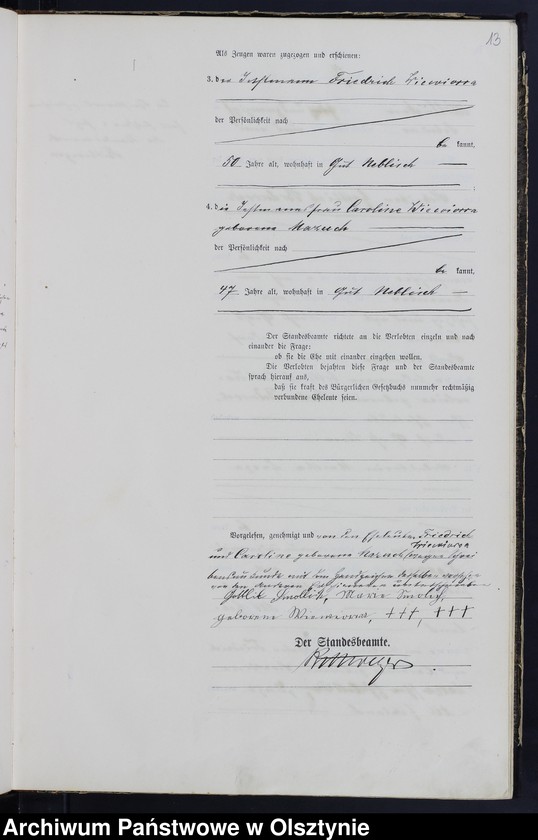 13
Als Zeugen waren zugezogen und erschienen:
3. der Instmann Friedrich Wiewiorra
der Persönlichkeit nach
be kannt,
50 Jahre alt, wohnhaft in Gut Neblisch
4. die Instmannsfrau Caroline Wiewiorra
geborene Mazuch
der Persönlichkeit nach
be kannt,
47 Jahre alt, wohnhaft in Gut Neblisch
Der Standesbeamte richtete an die Verlobten einzeln und nach
einander die Frage:
ob sie die Ehe mit einander eingehen wollen.
Die Verlobten bejahten diese Frage und der Standesbeamte
sprach hierauf aus,
daß sie kraft des Bürgerlichen Gesetzbuchs nunmehr rechtmäßig
verbundene Eheleute seien.
Vorgelesen, genehmigt und von den Eheleuten Friedrich
Wiewiorra
und Caroline geborene Mazuch wegen Schrei
bensunkunde mit dem Handzeichen derselben versehen
von den Anderen unterschrieben
Gottlieb Smollik, Marie Smollik,
geborene Wiewiorra, +++, +++
Der Standesbeamte.
Archiwum Państwowe w Olsztynie